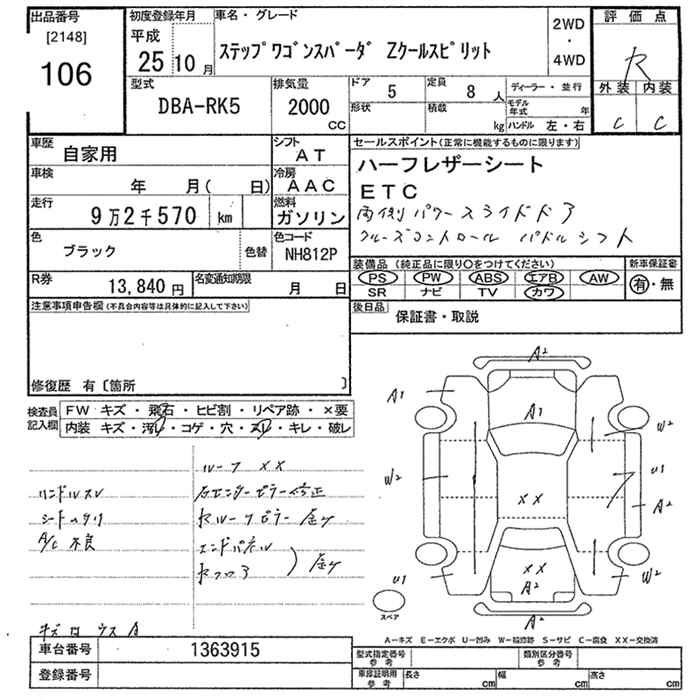 出品番号
[2148]
106
初度登録年月
平成
25年10月
車名・グレード
ステップワゴンスパーダ Zクールスピリット
2WD
・
4WD
評価点
R
外装 内装
C C
型式
DBA-RK5
排気量
2000
CC
ドア 5
定員 8 人
形状
積載 kg
ディーラー・並行
モデル年式 年
ハンドル 左・右
車歴
自家用
シフト
AT
車検
年 月( 日)
冷房
AAC
走行
9万2千570 km
燃料
ガソリン
色
ブラック
色替
色コード
NH812P
R券
13,840 円
名変通知期限
月 日
セールスポイント(正常に機能するものに限ります)
ハーフレザーシート
ETC
両側パワースライドドア
クルーズコントロール パドルシフト
装備品(純正品に限り○をつけてください)
新車保証書
PS PW ABS エアB AW
SR ナビ TV カワ
有・無
後日品
保証書・取説
注意事項申告欄(不具合内容等は具体的に記入して下さい)
修復歴 有〔箇所 〕
検査員記入欄
FW キズ・飛石・ヒビ割・リペア跡・×要
内装 キズ・汚レ・コゲ・穴・スレ・キレ・破レ
ルーフ XX
ハンドルスレ
右センターピラー修正
シート
ルーフピラー
A/C 不良
エンドパネル
フロア
A2
A1
A1
W2
W2
U1
A2
XX
XX
A2
W2
U1
スペア
A2
A-キズ E-エクボ U-凹み W-補修跡 S-サビ C-腐食 XX-交換済
車台番号
1363915
登録番号
型式指定番号
参考
類別区分番号
参考
車庫証明用
参考
長さ cm 幅 cm 高さ cm